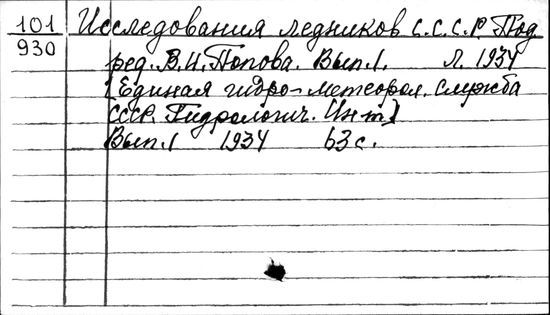 101 Исследования ледников С.С.С.Р. Под
930 ред. В.И. Попова. Вып. 1. Л. 1934
(Единая гидро-метеорол. служба
СССР. Гидрологич. Ин-т)
Вып. 1 1934 63 с.